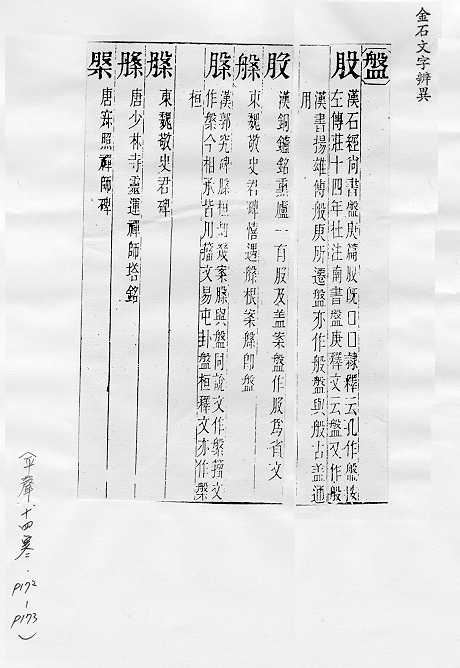 金石文字辨異
盤
股 漢石經尚書盤庚篇股旣囗囗隸釋云孔作盤按
左傳莊十四年杜注商書盤庚釋文云盤又作般
漢書揚雄傳般庚所遷盤亦作般盤與般古盖通
用
股 漢銅鑪銘熏盧一有股及盖案盤作股爲省文
東魏敬史君碑 根案 卽盤
漢郭究碑 桓 案 與盤同說文作槃籒文
作盤今相承皆用籒文易屯卦盤桓釋文亦作槃
桓
東魏敬史君碑
唐少林寺靈運禪師塔銘
槃 唐 照禪師碑
(平聲十四寒.P172-P173)